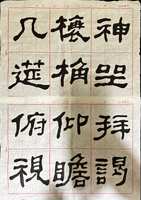 神坐拜謁
榱桷仰瞻
几筵俯視